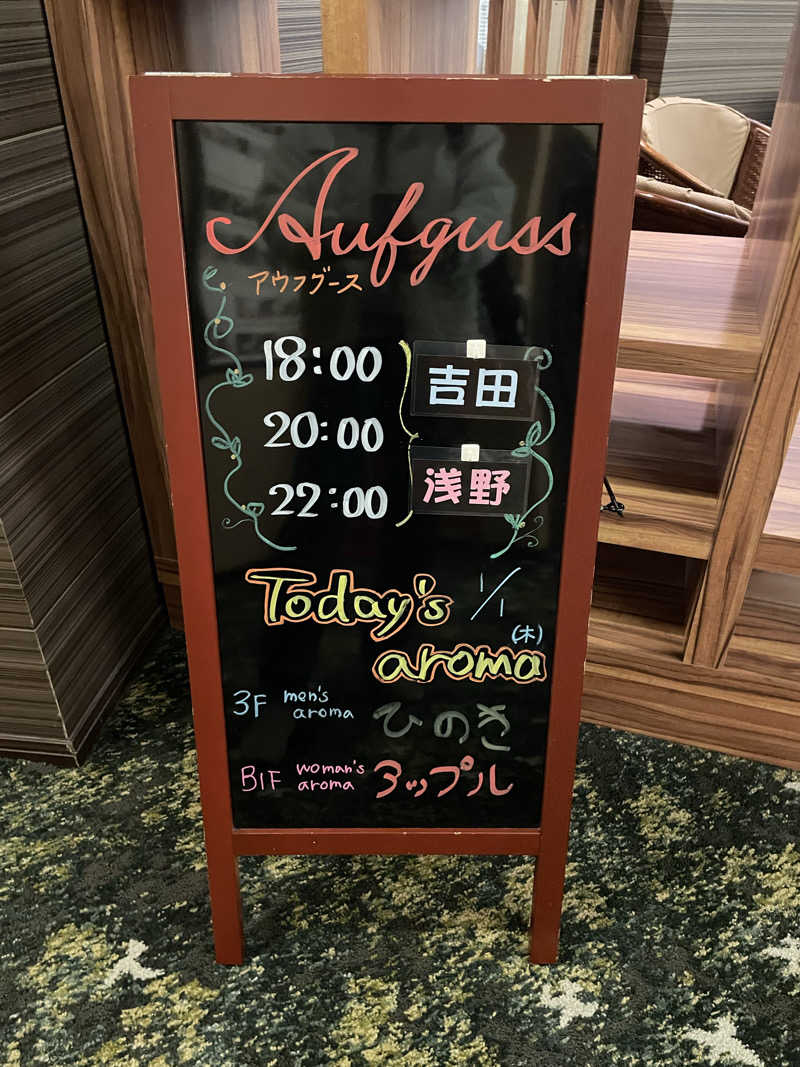 Aufguss
アウフグース
18:00
吉田
20:00
22:00
浅野
Today's 1/1
(木)
aroma
3F men's aroma ひのき
B1F woman's aroma アップル